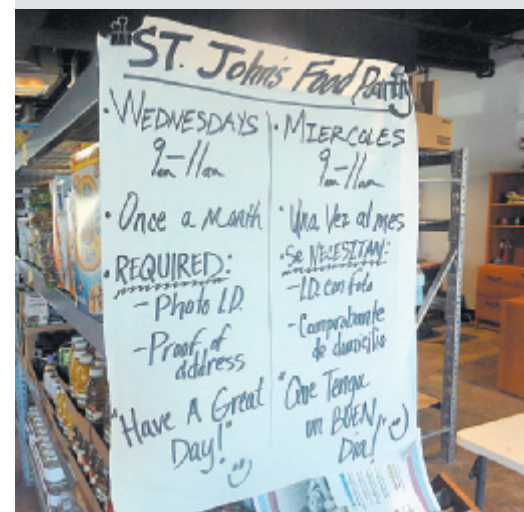 ST. John's Food Pantry
• WEDNESDAYS
9am-11am
• Once a Month
• REQUIRED:
- Photo I.D.
- Proof of
address
"Have A Great
Day!"
• MIERCOLES
9am-11am
• Una Vez al mes
• Se NECESITAN:
- I.D. con foto
- Comprobante
de domicilio
"Que Tenga
un BUEN
Dia!"